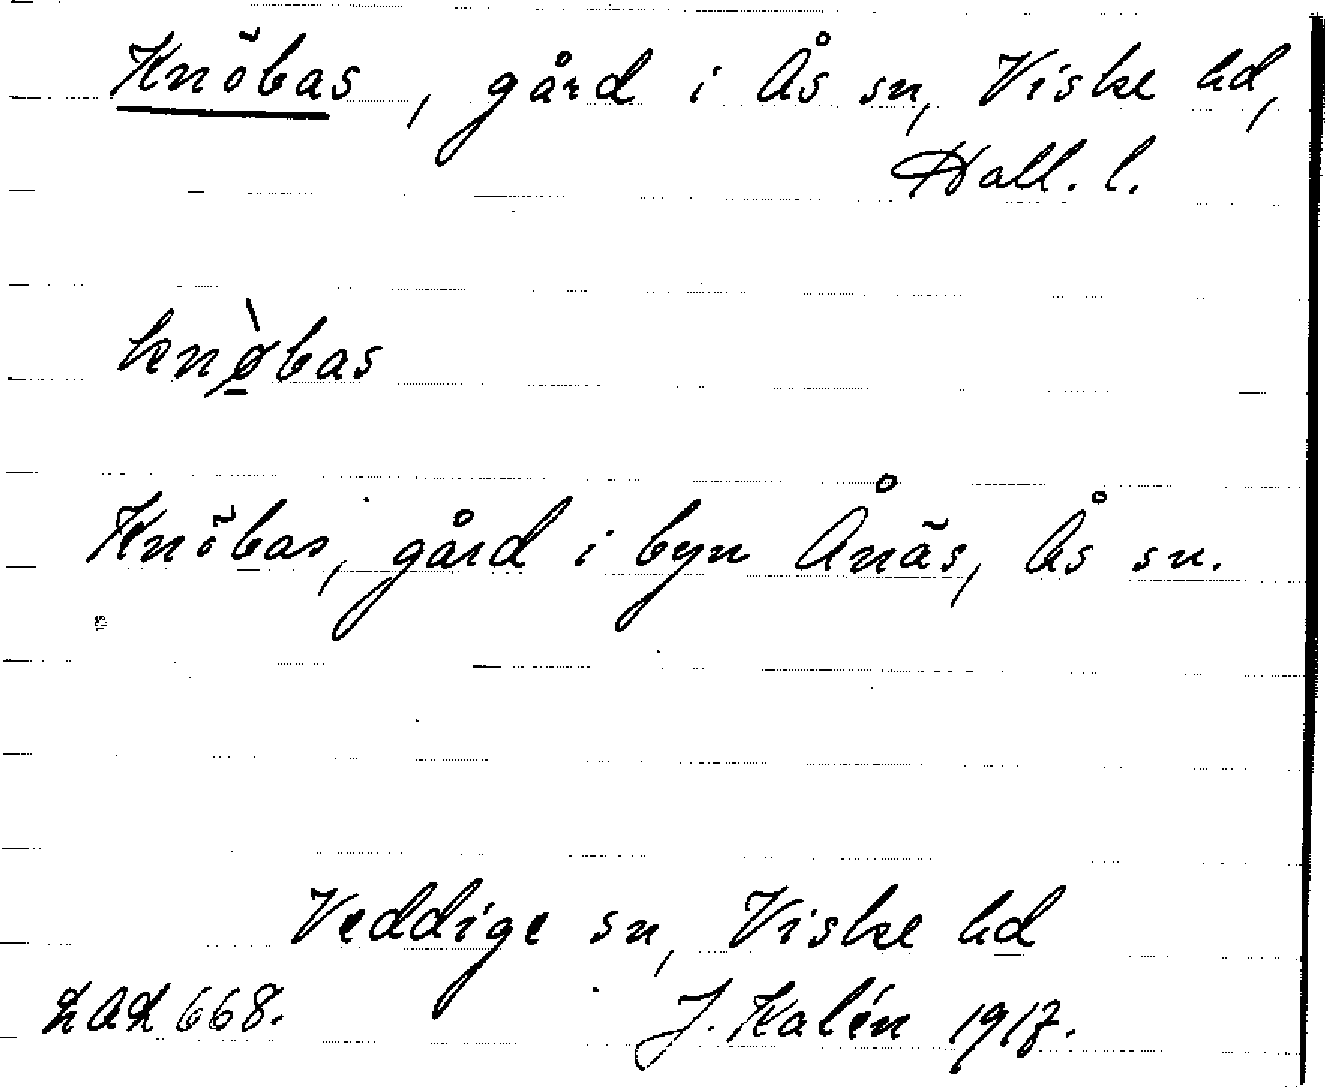 Knöbas, gård i Ås sn, Viske hd,
Hall. l.
knø̀bas
Knöbas, gård i byn Ånäs, Ås sn.
Veddige sn, Viske hd
LAL 668. J. Kalén 1917.